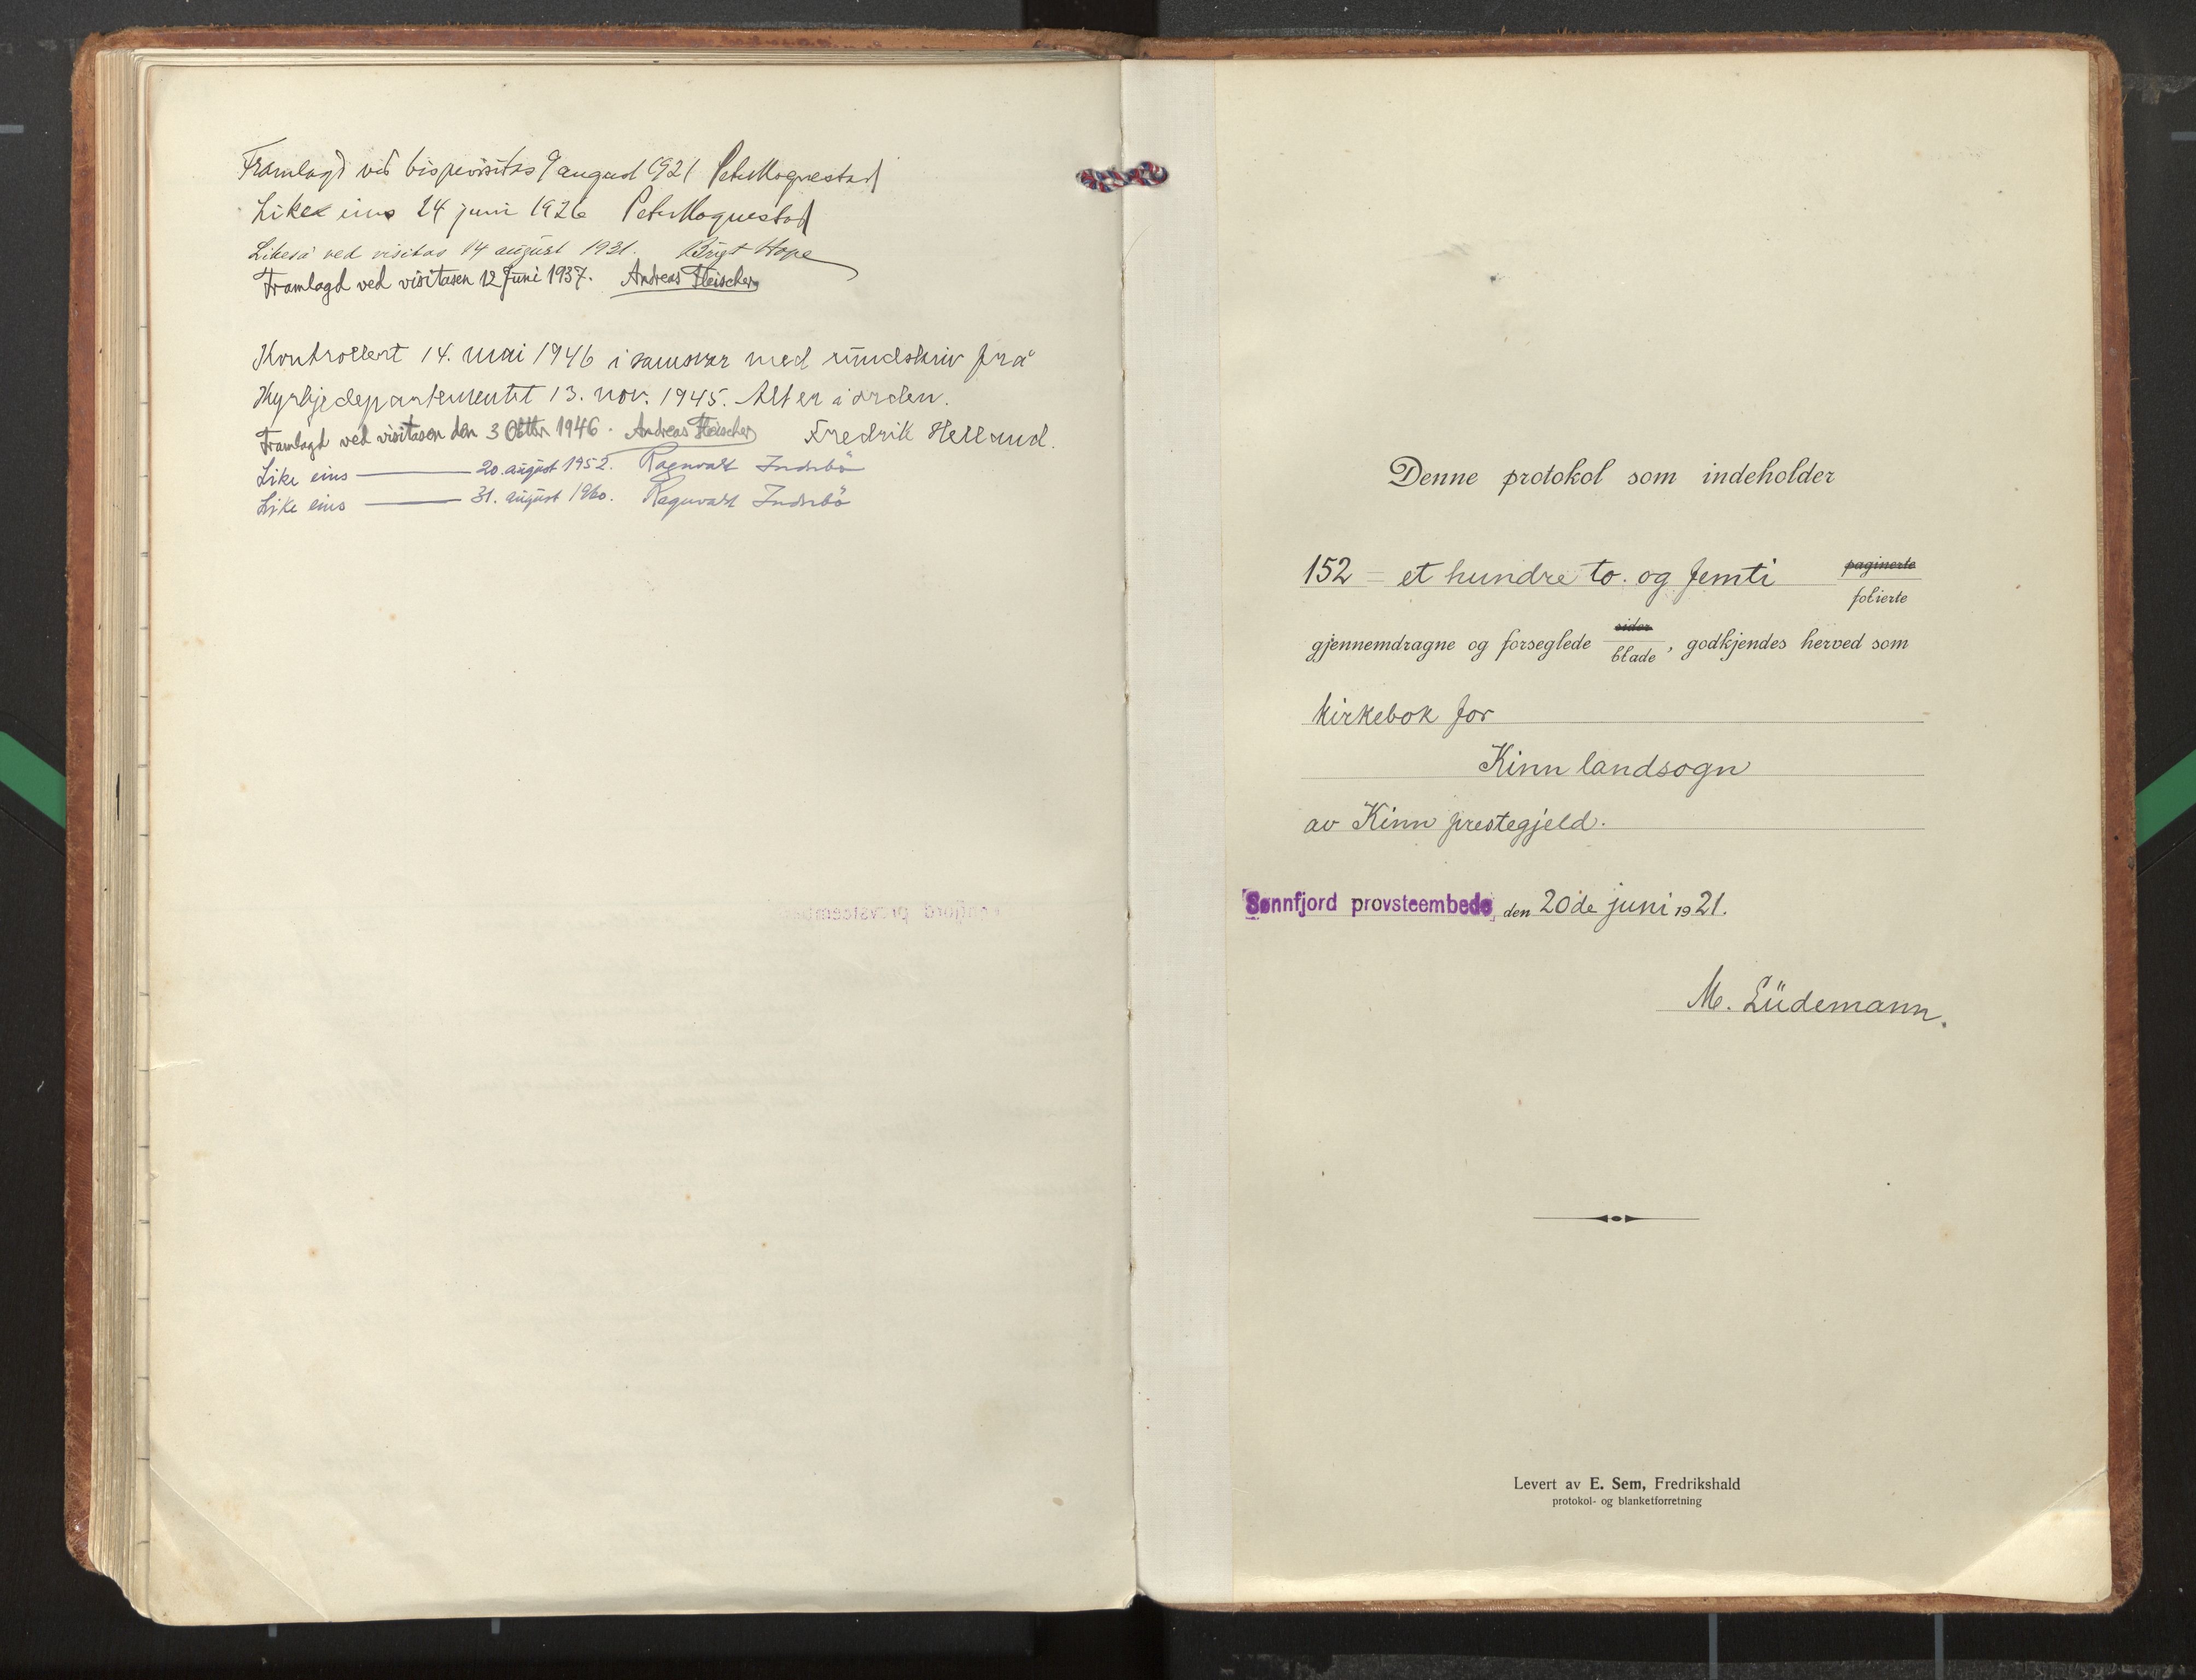 Framlagd ved bispevisitas 9 august 1921 Peter Hognestad
Like eins 24 juni 1926 Peter Hognestad
Likeså ved visitas 14 august 1931. Birgt Hope
Framlagd ved visitasen 12 Juni 1937. Andreas Fleischer
Kontrollert 14. mai 1946 i samsvar med rundskriv frå
Kyrkjedepartementet 13. nov. 1945. Alt er i orden.
Fredrik Helland.
Framlagd ved visitasen den 3 Oktbr 1946. Andreas Fleischer
Like eins 20. august 1952. Ragnvald Indrebö
Like eins 31. august 1960. Ragnvald Indrebö
Denne protokol som indeholder
152 = et hundre to og femti paginerte
folierte
gjennemdragne og forseglede sider
blade, godkjendes herved som
kirkebok for
Kinn landsogn
av Kinn prestegjeld.
Sønnfjord provsteembede, den 20de juni 1921.
M. Lüdemann.
Levert av E. Sem, Fredrikshald
protokol- og blanketforretning